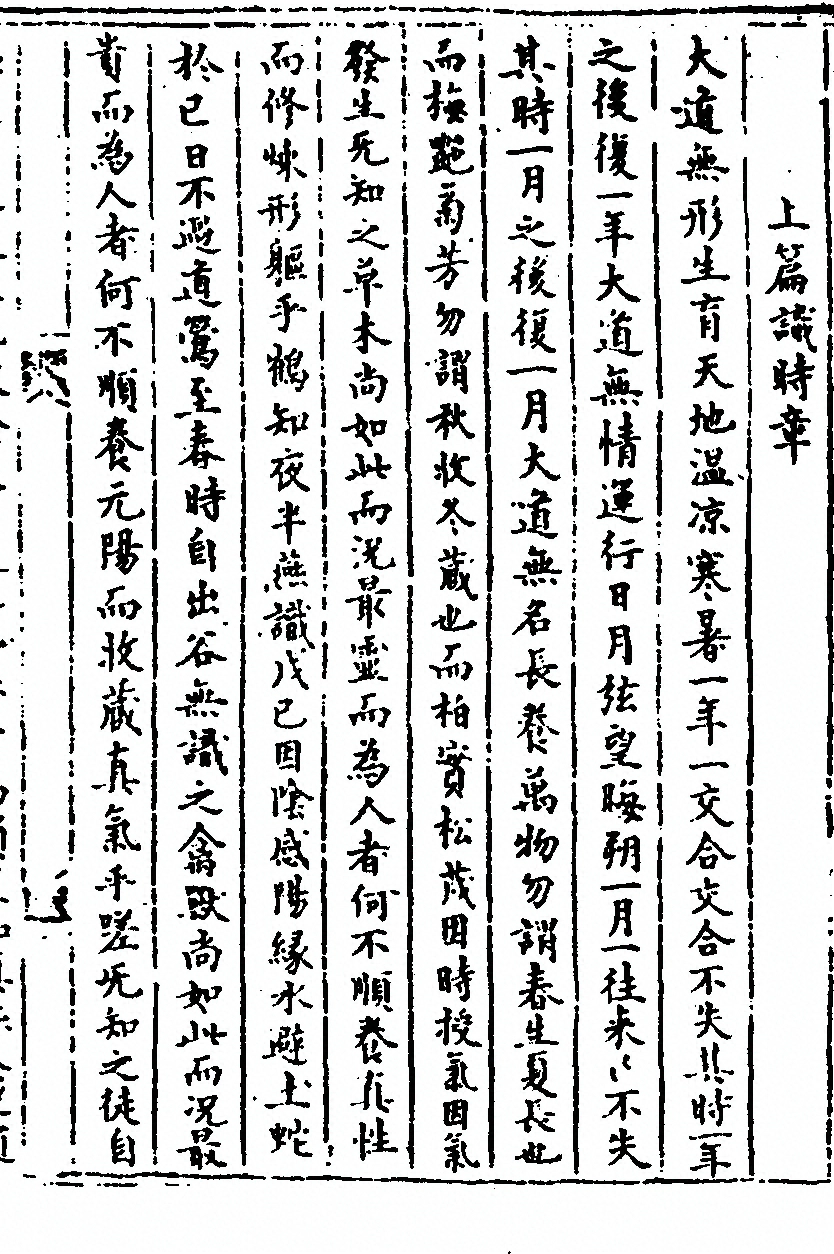 上篇識時章
大道無形生育天地温凉寒暑一年一交合交合不失其時一年
之後復一年大道無情運行日月弦望晦朔一月一往来〻不失
其時一月之後復一月大道無名長養萬物勿謂春生夏長也
而梅艶菊芳勿謂秋收冬蔵也而柏實松茂因時授氣因氣
發生旡知之草木尚如此而况最靈而為人者何不順養真性
而修煉形軀乎鶴知夜半燕識戊己因陰感陽縁水避土蛇
於巳日不道鶯至春時自出谷無識之禽獸尚如此而况最
貴而為人者何不順養元陽而收蔵真氣乎嗟旡知之徒自